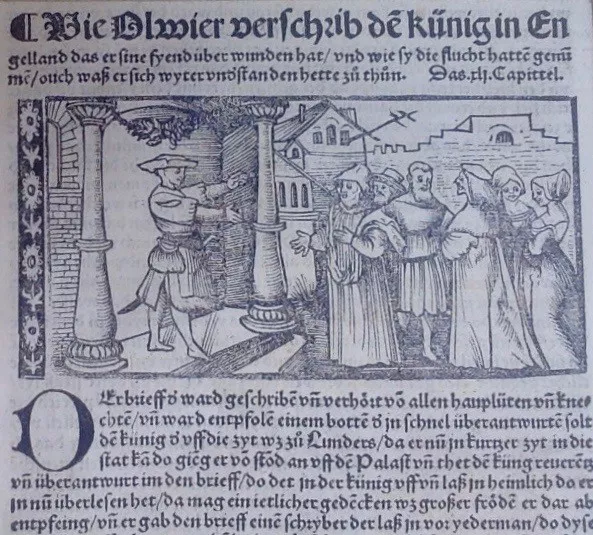 ¶ Wie Olwier verschrib dē künig in En
gelland das er sine fyend über wunden hat/ vnd wie sy die flucht hattē genū
mē/ ouch waß er sich wyter vnderstanden hette zů thůn. Das .xlj. Capittel.
DEr brieff d ward geschribē vñ verhört võ allen hauplüten vñ kne-
chtē/ vñ ward entpfolē einem bottē d in schnel überantwurtē solt
dē künig d vff die zyt wz zů Lunders/ da er nū in kurtzer zyt in die
stat kā do gieg er võ stõd an vff dē Palast vñ thet dē küng reuerētz
vñ überantwurt im den brieff/ do det in der künig vff vñ laß in heimlich do er
in nū überlesen het/ da mag ein ietlicher gedēcken wz großer frödē er dar ab
entpfeing/ vñ er gab den brieff einē schryber der laß in vor yederman/ do dyse